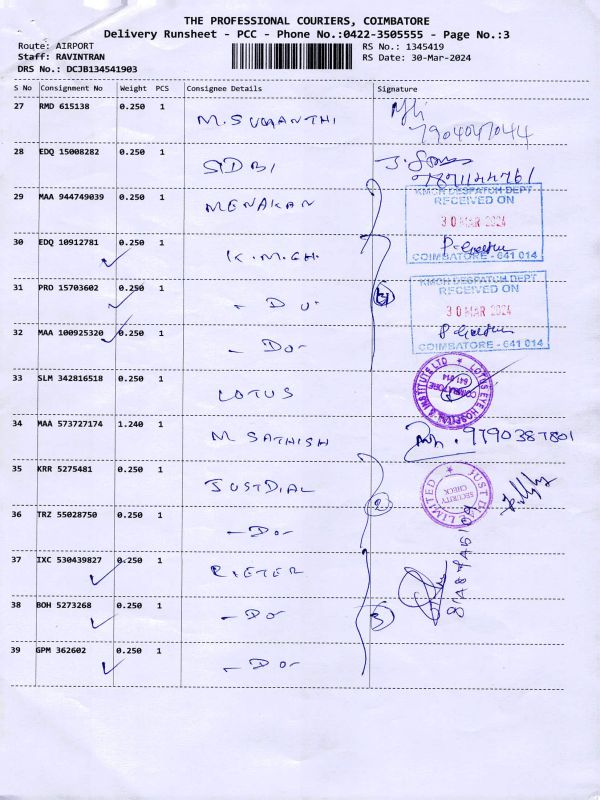 THE PROFESSIONAL COURIERS, COIMBATORE
Delivery Runsheet - PCC - Phone No.:0422-3505555 - Page No.:3
Route: AIRPORT RS No.: 1345419
Staff: RAVINTRAN RS Date: 30-Mar-2024
DRS No.: DCJB134541903
S No Consignment No Weight PCS Consignee Details Signature
27 RMD 615138 0.250 1
7904047044
28 EDQ 15008282 0.250 1 SIDBI
29 MAA 944749039 0.250 1 MENAKAN
KMCH DESPATCH DEPT
RECEIVED ON
30 MAR 2024
COIMBATORE - 641 014
30 EDQ 10912781 0.250 1 K.M.CH
31 PRO 15703602 0.250 1 - Do -
4
KMCH DESPATCH DEPT
RECEIVED ON
30 MAR 2024
COIMBATORE - 641 014
32 MAA 100925320 0.250 1 - Do -
33 SLM 342816518 0.250 1 LOTUS
LOTUS EYE HOSPITAL & INSTITUTE LTD
COIMBATORE
641 014
34 MAA 573727174 1.240 1 M SATHISH
9790387801
35 KRR 5275481 0.250 1 JUSTDIAL
JUST DIAL LIMITED
SECURITY
CHECK
2
36 TRZ 55028750 0.250 1 - Do -
37 IXC 530439827 0.250 1 RIETER
38 BOH 5273268 0.250 1 - Do -
3
39 GPM 362602 0.250 1 - Do -